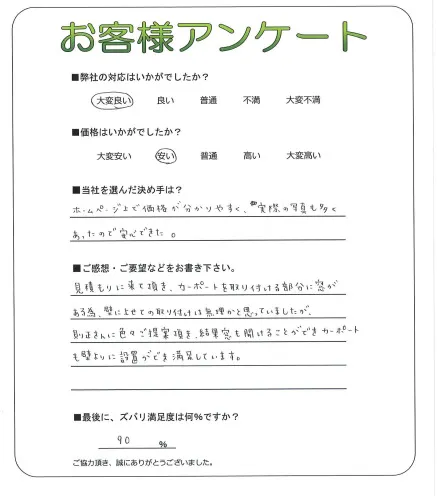 お客様アンケート
■弊社の対応はいかがでしたか？
大変良い　良い　普通　不満　大変不満
■価格はいかがでしたか？
大変安い　安い　普通　高い　大変高い
■当社を選んだ決め手は？
ホームページ上で価格が分かりやすく、実際の写真も多く
あったので安心できた。
■ご感想・ご要望などをお書き下さい。
見積もりに来て頂き、カーポートを取り付ける部分に窓が
ある為、壁によせての取り付けは無理かと思っていましたが、
則正さんに色々ご提案頂き、結果窓も開けることができカーポート
も壁よりに設置ができ満足しています。
■最後に、ズバリ満足度は何%ですか？
90 %
ご協力頂き、誠にありがとうございました。